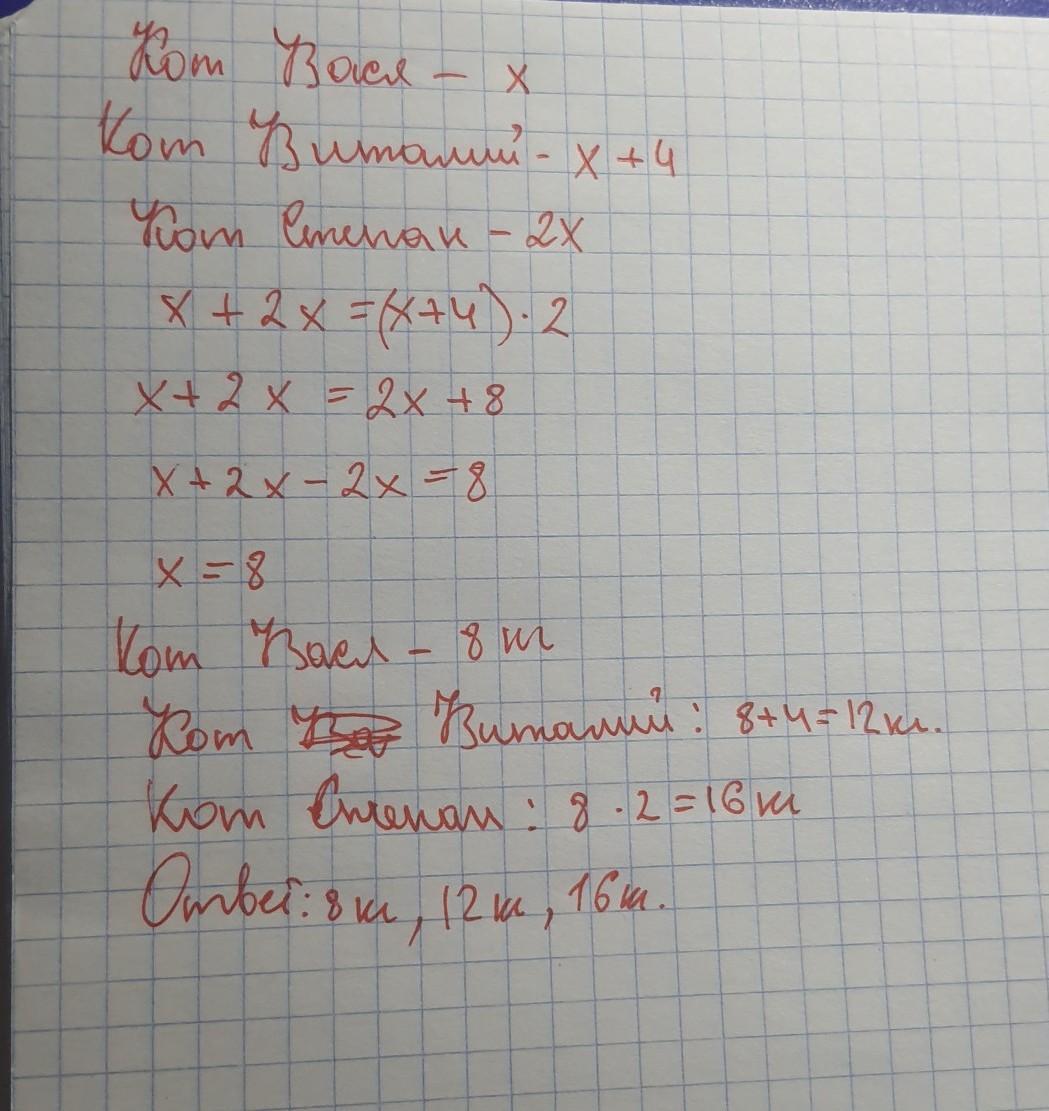 Кот Вася – x
Кот Виталий - x + 4
Кот Степан – 2x
x + 2x = (x+4) · 2
x + 2x = 2x + 8
x + 2x – 2x = 8
x = 8
Кот Вася – 8 кг
Кот Виталий : 8+4=12кг.
Кот Степан : 8 · 2 = 16 кг
Ответ: 8 кг, 12 кг, 16 кг.